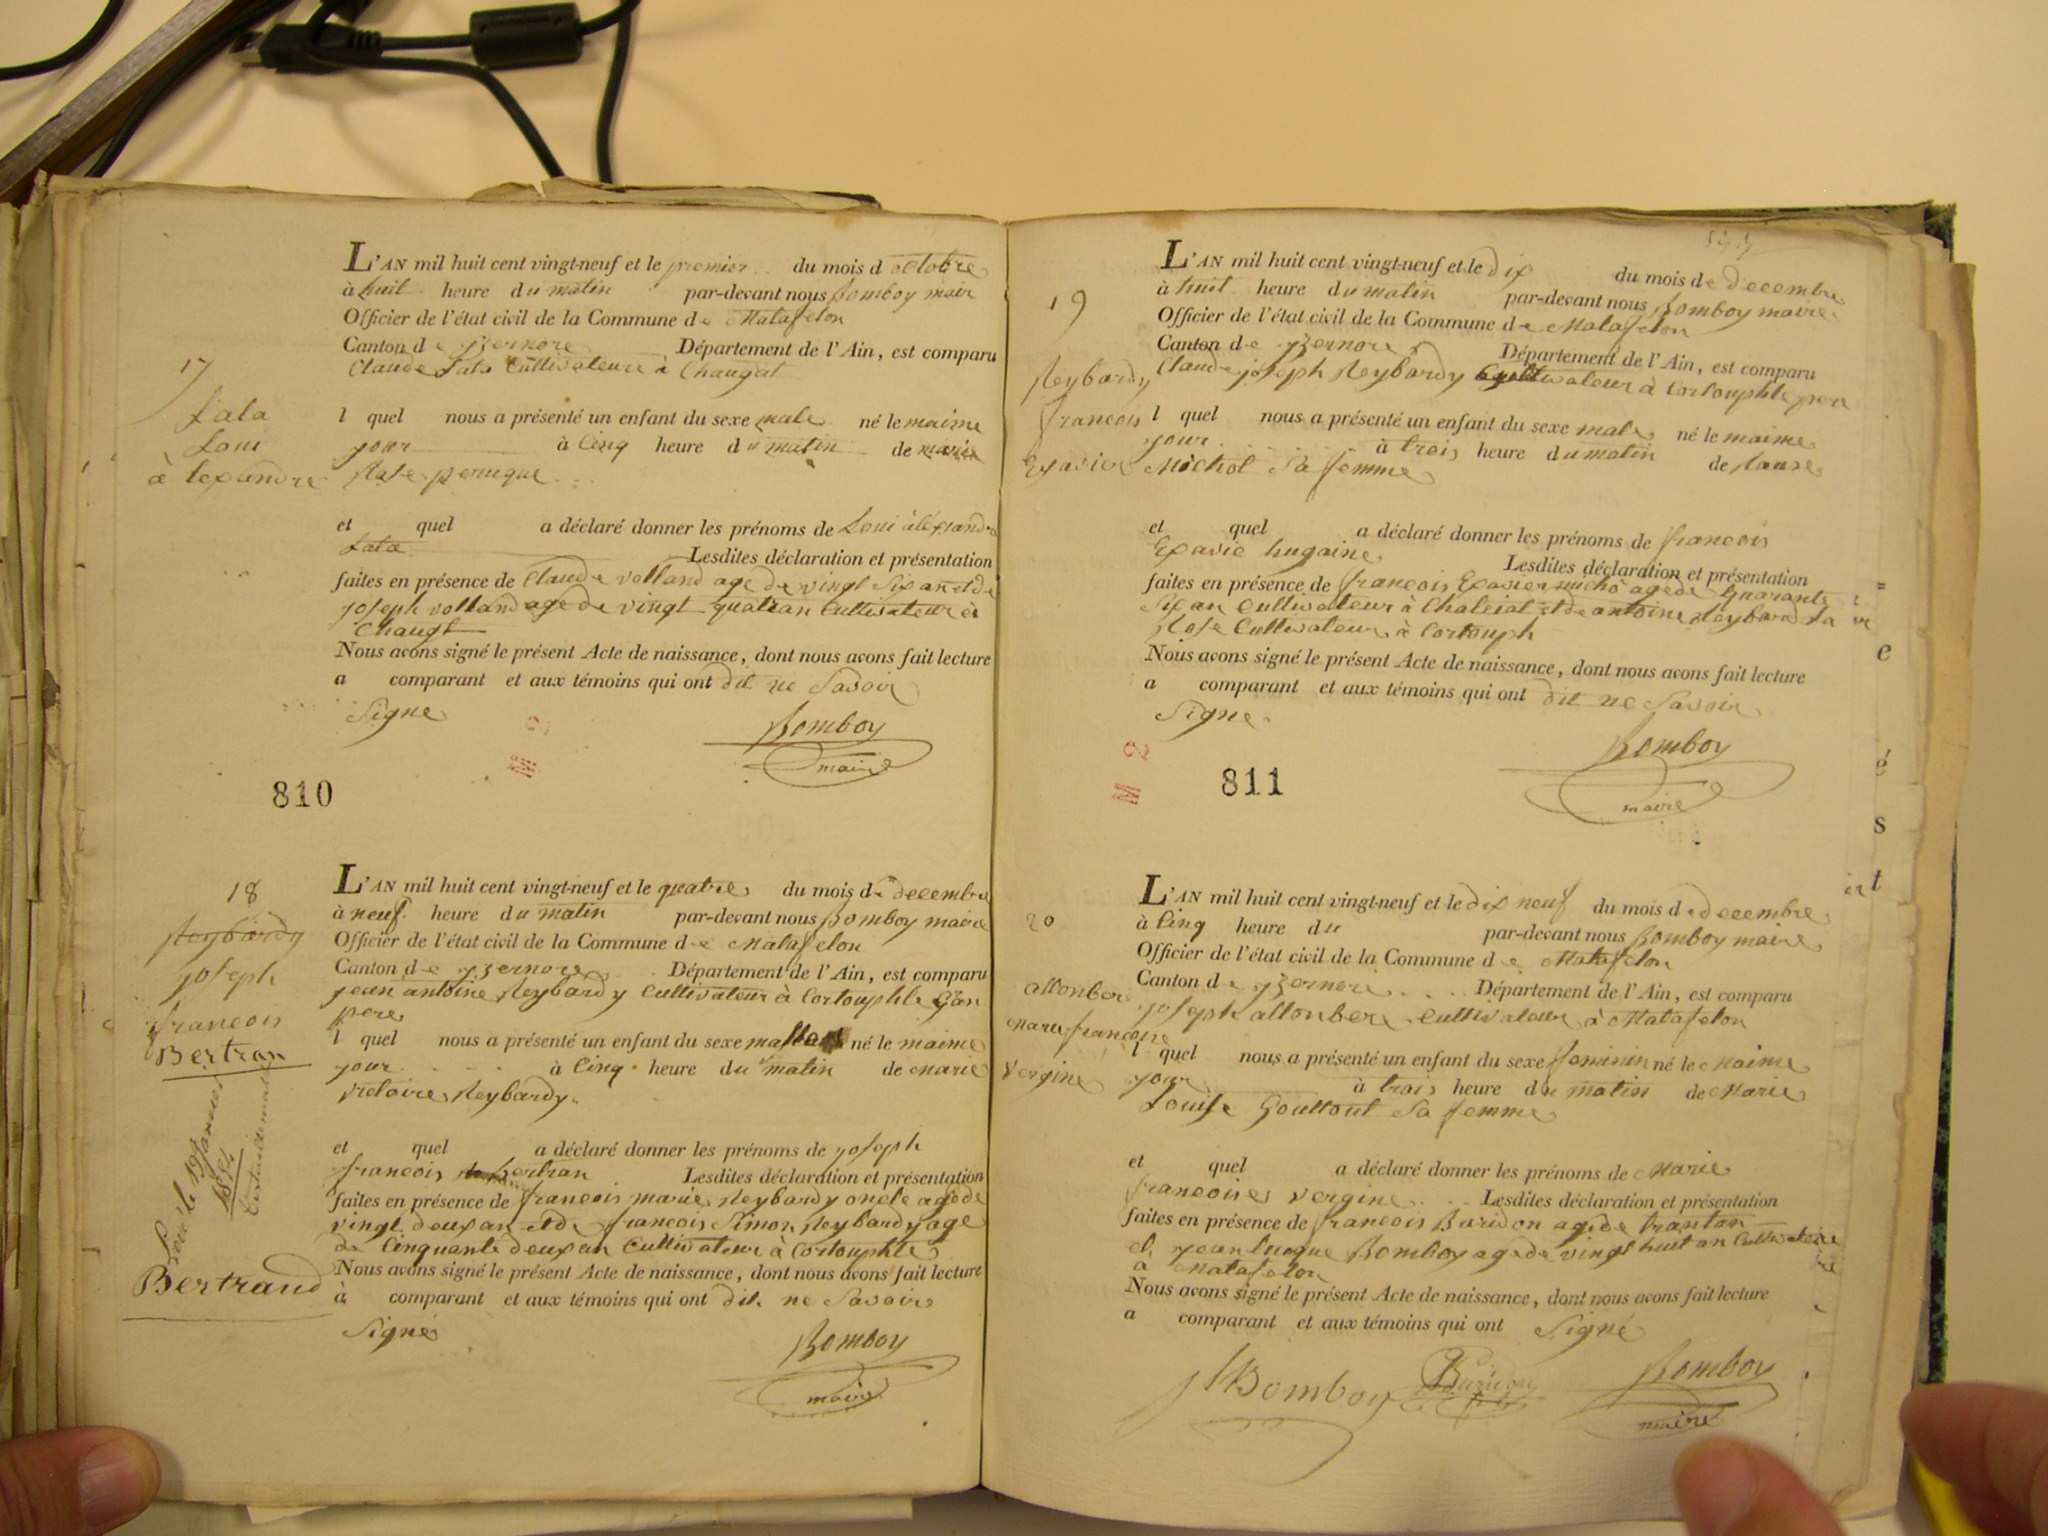 17
Lala
Loui
à lexandre
L'AN mil huit cent vingt-neuf et le premier du mois d octobre
à huit heure du matin par-devant nous Bomboy mair
Officier de l'état civil de la Commune de Matafelon
Canton de yzernore Département de l'Ain, est comparu
Claude Lala Cultivateure à Chaugat
l quel nous a présenté un enfant du sexe male né le maime
jour à Cinq heure du matin de marie
Rose peruque
et quel a déclaré donner les prénoms de Loui àlexandre
Lala Lesdites déclaration et présentation
faites en présence de Claude volland age de vingt six an et de
joseph volland age de vingt quatran Cultivateur à
Chaugt
Nous avons signé le présent Acte de naissance, dont nous avons fait lecture
a comparant et aux témoins qui ont dit ne Savoir
Signe
Bomboy
maire
810
18
Reybardy
joseph
francois
Bertran
Bertrand
L'AN mil huit cent vingt-neuf et le quatre du mois de decembre
à neuf heure du matin par-devant nous Bomboy maire
Officier de l'état civil de la Commune de Matafelon
Canton de yzernore Département de l'Ain, est comparu
jean antoine Reybardy Cultivateur à Cortouphle
pere
l quel nous a présenté un enfant du sexe né le maime
jour à Cinq heure du matin de Marie
victoire Reybardy
et quel a déclaré donner les prénoms de joseph
francois bertran Lesdites déclaration et présentation
faites en présence de francois marie Reybardy oncle age de
vingt deux an et de francois Simon Reybardy age
de Cinquante deux an Cultivateur à Cortouphle
Nous avons signé le présent Acte de naissance, dont nous avons fait lecture
à comparant et aux témoins qui ont dit ne Savoir
Signé
Bomboy
maire
19
Reybardy
francois
Exavier
L'AN mil huit cent vingt-neuf et le dix du mois de decembre
à huit heure du matin par-devant nous Bomboy maire
Officier de l'état civil de la Commune de Matafelon
Canton de yzernore Département de l'Ain, est comparu
Claude joseph Reybardy Cultivateur à Cortouphle pere
l quel nous a présenté un enfant du sexe male né le maime
jour à trois heure du matin de
Michot Sa femme
et quel a déclaré donner les prénoms de francois
Exavie hugaine Lesdites déclaration et présentation
faites en présence de francois Exavier micho age de quarante
Six an Cultivateur à Chaleiat et de antoine Reybard la
Rose Cultivateur à Cortouph
Nous avons signé le présent Acte de naissance, dont nous avons fait lecture
a comparant et aux témoins qui ont dit ne Savoir
Signe
Bomboy
maire
811
20
allonber
Marie francoise
vergine
L'AN mil huit cent vingt-neuf et le dix neuf du mois de decembre
à Cinq heure du par-devant nous Bomboy maire
Officier de l'état civil de la Commune de Matafelon
Canton de yzernore Département de l'Ain, est comparu
joseph allonber Cultivateur à Matafelon
l quel nous a présenté un enfant du sexe feminin né le Maime
jour à trois heure du matin de Marie
Louise Gouttout Sa femme
et quel a déclaré donner les prénoms de Marie
francoise vergine Lesdites déclaration et présentation
faites en présence de francois Buridon age de trantan
et jean Bomboy age de vingt huit an Cultivateur
a Matafelon
Nous avons signé le présent Acte de naissance, dont nous avons fait lecture
a comparant et aux témoins qui ont Signé
Bomboy
Buridon
Bomboy
maire